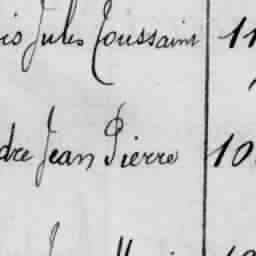 is Jules Toussaint 11
dre Jean Pierre 10